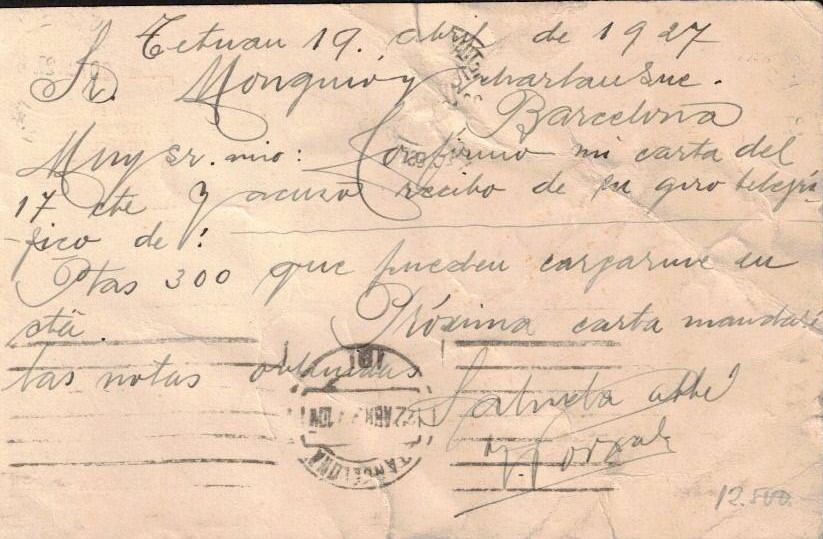 Tetuan 19. abril de 1927
Sr. Monguió y Scharlau Suc.
Barcelona
Muy sr. mio: Confirmo mi carta del
17 cte y acuso recibo de su giro telegrá-
fico de:
Ptas 300 que pueden cargarme en
cta. Próxima carta mandaré
las notas obtenidas
Saluda atte
BARCELONA
22 ABR
12.500.